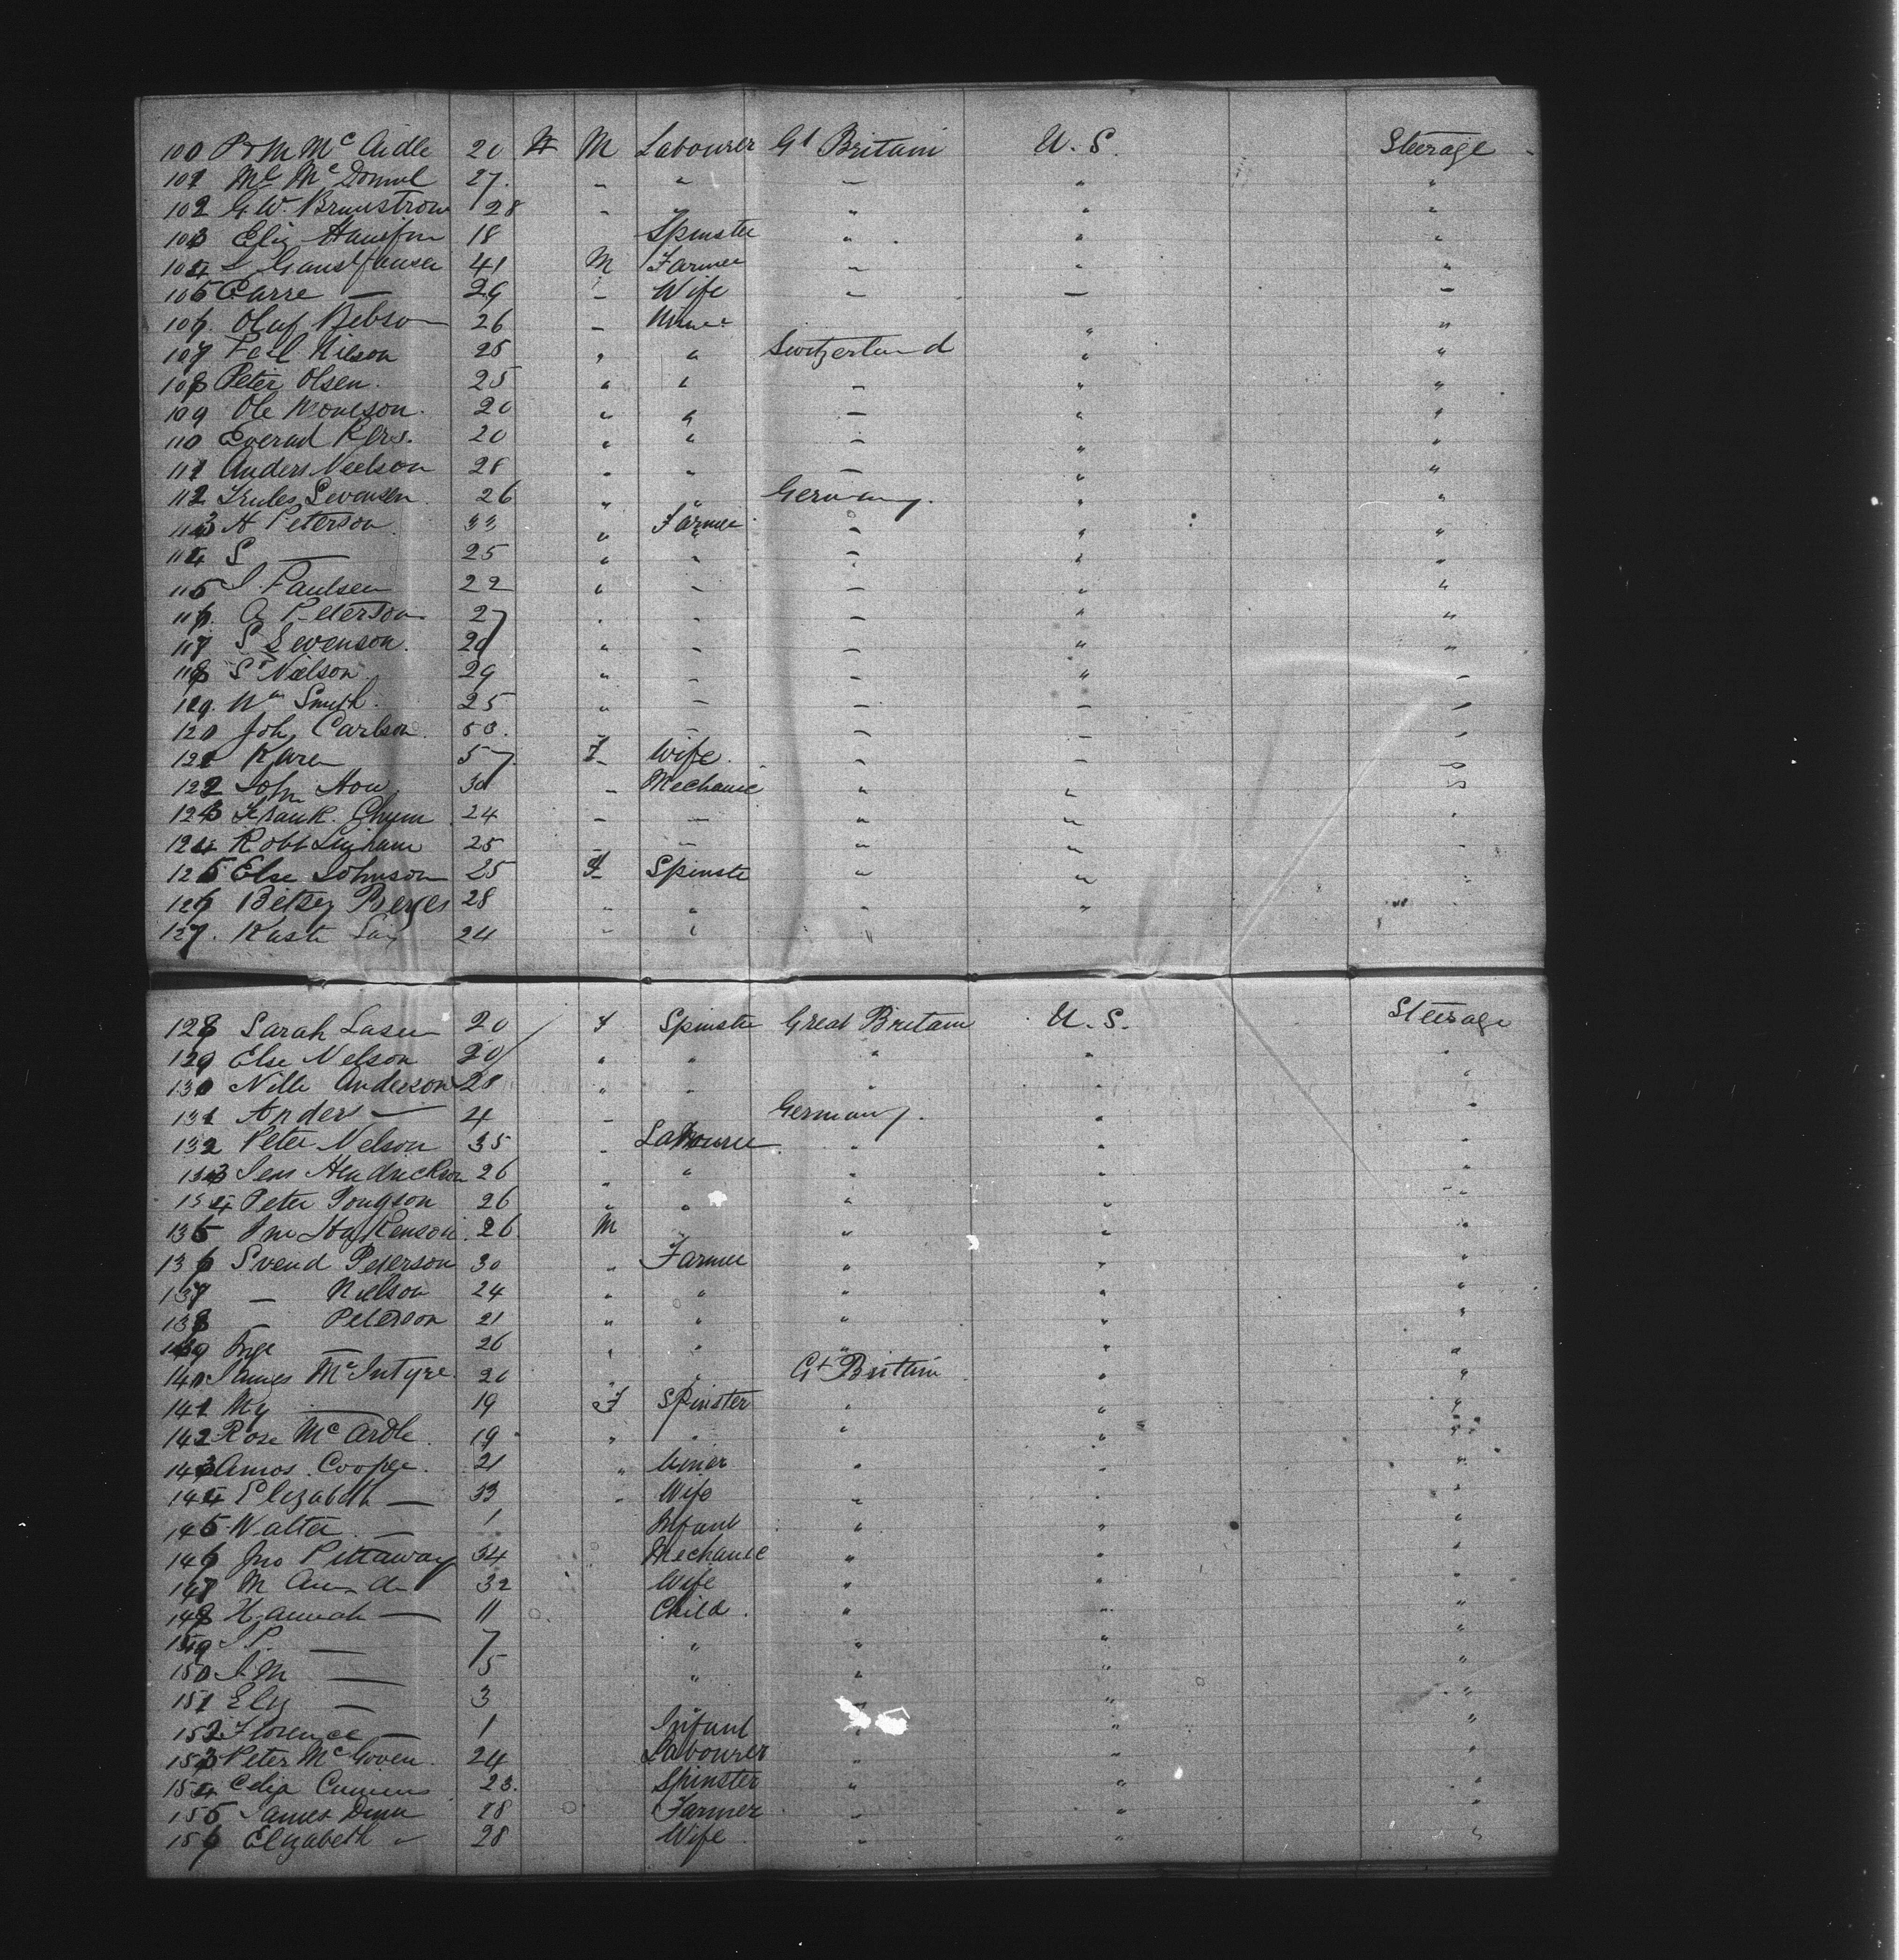 100 P & M Mc Ardle 20 M Labourer Gt Britain U. S. Steerage
101 Ml Mc Donnel 27. " " " " "
102 G. W. Brunstrom 28 " " " " "
103 Eliz 18 Spinster " " "
104 41 M Farmer " " "
105 Carre — 29 " Wife " " "
106 Olaf Bebson 26 " Miner " "
107 Nilson 25 " " Switzerland " "
108 Peter Olsen. 25 " " " " "
109 Ole Monson. 20 " " " " "
110 Everad 20 " " " " "
111 Anders Neelson 28 " " " " "
112 Trules Sevensen 26 " " Germany. " "
113 H Peterson 33 " Farmer " " "
114 S — 25 " " " " "
115 J. Paulsen 22 " " " " "
116 A Peterson 27 " " " " "
117 S Sevenson. 20 " " " " "
118 S Nielson 29 " " " " "
119. Wm Smith. 25 " " " " "
120 Joh Carlson. 50. " " " "
121 Karen 57 F Wife. " " "
122 John How 30 " Mechanic " "
123 Frank. Chum 24 " " " " "
124 Robt 25 " " " " "
125 Else Johnson 25 F Spinste " "
126 Betsey 28 " " " " "
127. 24 " " "
128 Sarah Lasen 20 F Spinster Great Britain U. S. Steerage
129 Else Nelson 20 " " " " "
130 Nille Anderson 28 " " " " "
131 Anders — 4 " Germany. " "
132 Peter Nelson 35 " Labourer " " "
133 Jens Hendrickson 26 " " " " "
134 Peter 26 " " " " "
135 Hakenson 26 M " " " "
136 Svend Peterson 30 " Farmer " " "
137 — Nielson 24 " " " " "
138 — Peterson 21 " " " " "
139 Inge — 26 " " " " "
140 James McIntyre. 20 " " Gt Britain " "
141 My — 19 F Spinster " " "
142 Rose Mc Ardle. 19 " " " " "
143 Amos. Cooper. 21 " Miner " " "
144 Elizabeth — 33 " Wife " " "
145 Walter. — 1 Infant " " "
146 Jno Pittaway 34 Mechanic " " "
147 M Ann do 32 Wife " " "
148 Hannah — 11 Child. " " "
149 J. P. — 7 " " " "
150 J. M — 5 " " " "
151 Eliz — 3 " "
152 Florence — 1 Infant " " "
153 Peter McGoven. 24 Labourer " " "
154 Celia 23. Spinster " " "
155 James Dunn 28 Farmer " " "
156 Elizabeth " 28 Wife " " "